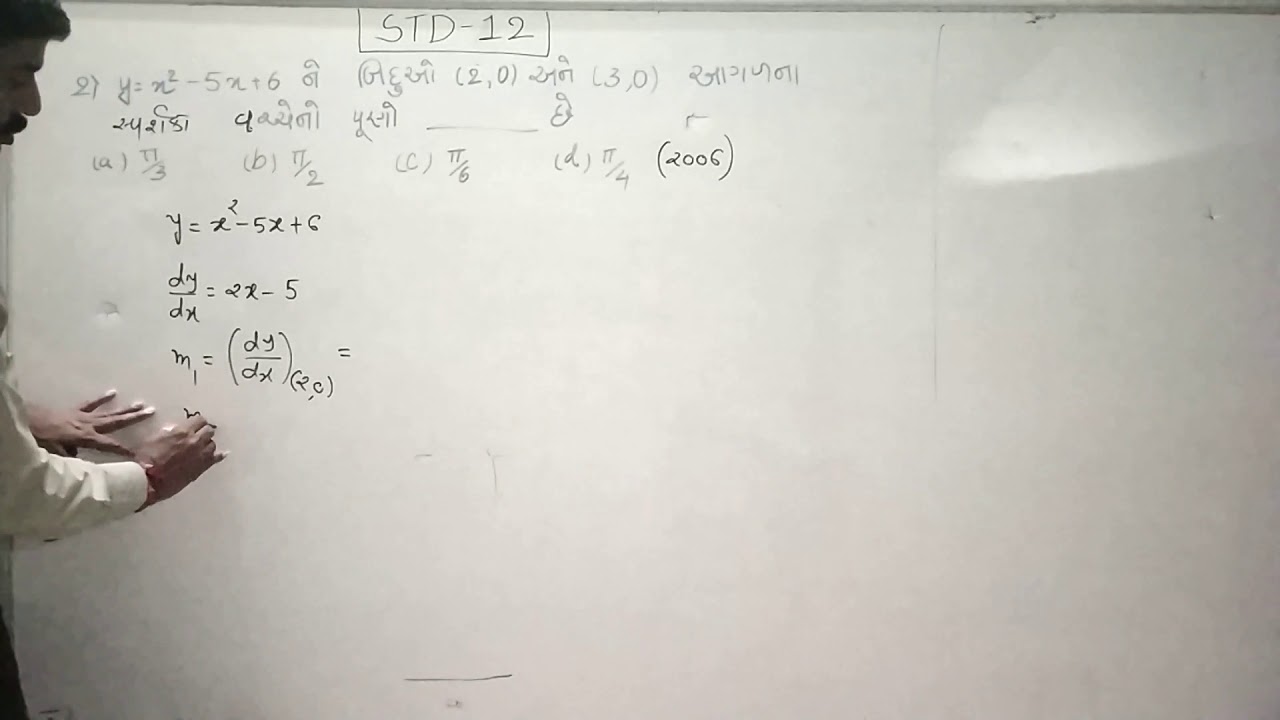 STD-12
2) y = x² - 5x + 6 ને બિંદુઓ (2,0) અને (3,0) આગળના
સ્પર્શકો વચ્ચેનો ખૂણો ______ છે
(a) π/3 (b) π/2 (c) π/6 (d) π/4 (2006)
y = x² - 5x + 6
dy/dx = 2x - 5
m₁ = (dy/dx)(2,0) =
m